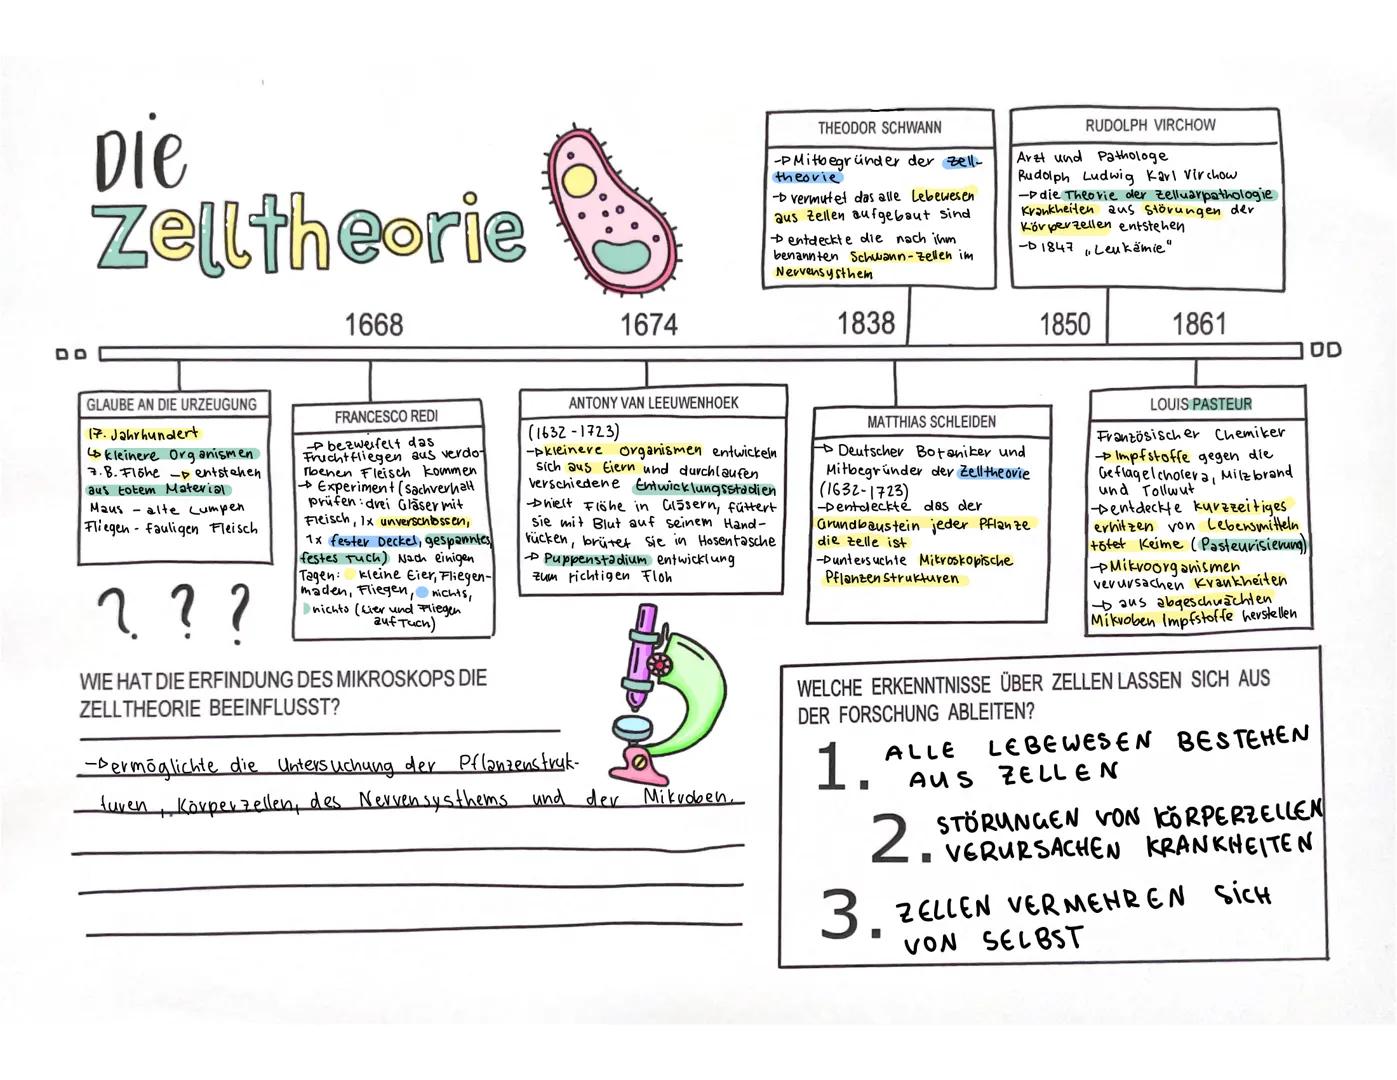 Die
Zelltheorie
THEODOR SCHWANN
→ Mitbegründer der Zell-
theorie
→ vermutet das alle Lebewesen
aus Zellen aufgebaut sind
→ entdeckte die nach ihm
benannten Schwann-Zellen im
Nervensysthem
RUDOLPH VIRCHOW
Arzt und Pathologe
Rudolph Ludwig Karl Virchow
→ die Theorie der Zelluarpathologie
Krankheiten aus Störungen der
Körperzellen entstehen
→ 1847 „Leukämie"
1668
1674
1838
1850
1861
GLAUBE AN DIE URZEUGUNG
17. Jahrhundert
↳ kleinere Organismen
z.B. Flöhe → entstehen
aus totem Material
Maus - alte Lumpen
Fliegen - fauligen Fleisch
? ? ?
FRANCESCO REDI
→ bezweifelt das
Fruchtfliegen aus verdo-
rbenen Fleisch kommen
→ Experiment (Sachverhalt
prüfen: drei Gläser mit
Fleisch, 1x unverschlossen,
1x fester Deckel, gespanntes
festes Tuch) Nach einigen
Tagen: kleine Eier, Fliegen-
maden, Fliegen, nichts,
nichts (Eier und Fliegen
auf Tuch)
ANTONY VAN LEEUWENHOEK
(1632-1723)
→ kleinere Organismen entwickeln
sich aus Eiern und durchlaufen
verschiedene Entwicklungsstadien
→ hielt Flöhe in Gläsern, füttert
sie mit Blut auf seinem Hand-
rücken, brütet sie in Hosentasche
→ Puppenstadium entwicklung
zum richtigen Floh
MATTHIAS SCHLEIDEN
→ Deutscher Botaniker und
Mitbegründer der Zelltheorie
(1632-1723)
→ entdeckte das der
Grundbaustein jeder Pflanze
die Zelle ist
→ untersuchte Mikroskopische
Pflanzenstrukturen
LOUIS PASTEUR
Französischer Chemiker
→ Impfstoffe gegen die
Geflügelcholera, Milzbrand
und Tollwut
→ entdeckte kurzzeitiges
erhitzen von Lebensmitteln
tötet Keime (Pasteurisierung)
→ Mikroorganismen
verursachen Krankheiten
→ aus abgeschwächten
Mikroben Impfstoffe herstellen
WIE HAT DIE ERFINDUNG DES MIKROSKOPS DIE
ZELLTHEORIE BEEINFLUSST?
→ ermöglichte die Untersuchung der Pflanzenstruk-
turen, Körperzellen, des Nervensysthems und der Mikroben.
WELCHE ERKENNTNISSE ÜBER ZELLEN LASSEN SICH AUS
DER FORSCHUNG ABLEITEN?
1. ALLE LEBEWESEN BESTEHEN
AUS ZELLEN
2. STÖRUNGEN VON KÖRPERZELLEN
VERURSACHEN KRANKHEITEN
3. ZELLEN VERMEHREN SICH
VON SELBST